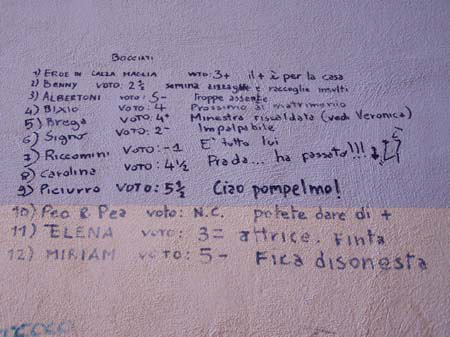 Bocciati
1) EROE IN CALZA MAGLIA voto: 3+ il + è per la casa
2) BENNY voto: 2½ semina zizzaglie e raccoglie insulti
3) ALBERTONI voto: 5- Troppe assenze
4) BIXIO voto: 4 Prossimo al matrimonio
5) Brega voto: 4+ Minestra riscaldata (vedi Veronica)
6) Signo voto: 2- Impalpabile
7) Riccomini voto: -1 E' tutto lui
8) carolina voto: 4½ Prada... ha passato!!!
9) Piciurro voto: 5½ Ciao pompelmo!
10) Peo & Pea voto: N.C. potete dare di +
11) ELENA voto: 3= attrice. Finta
12) MIRIAM voto: 5- Fica disonesta